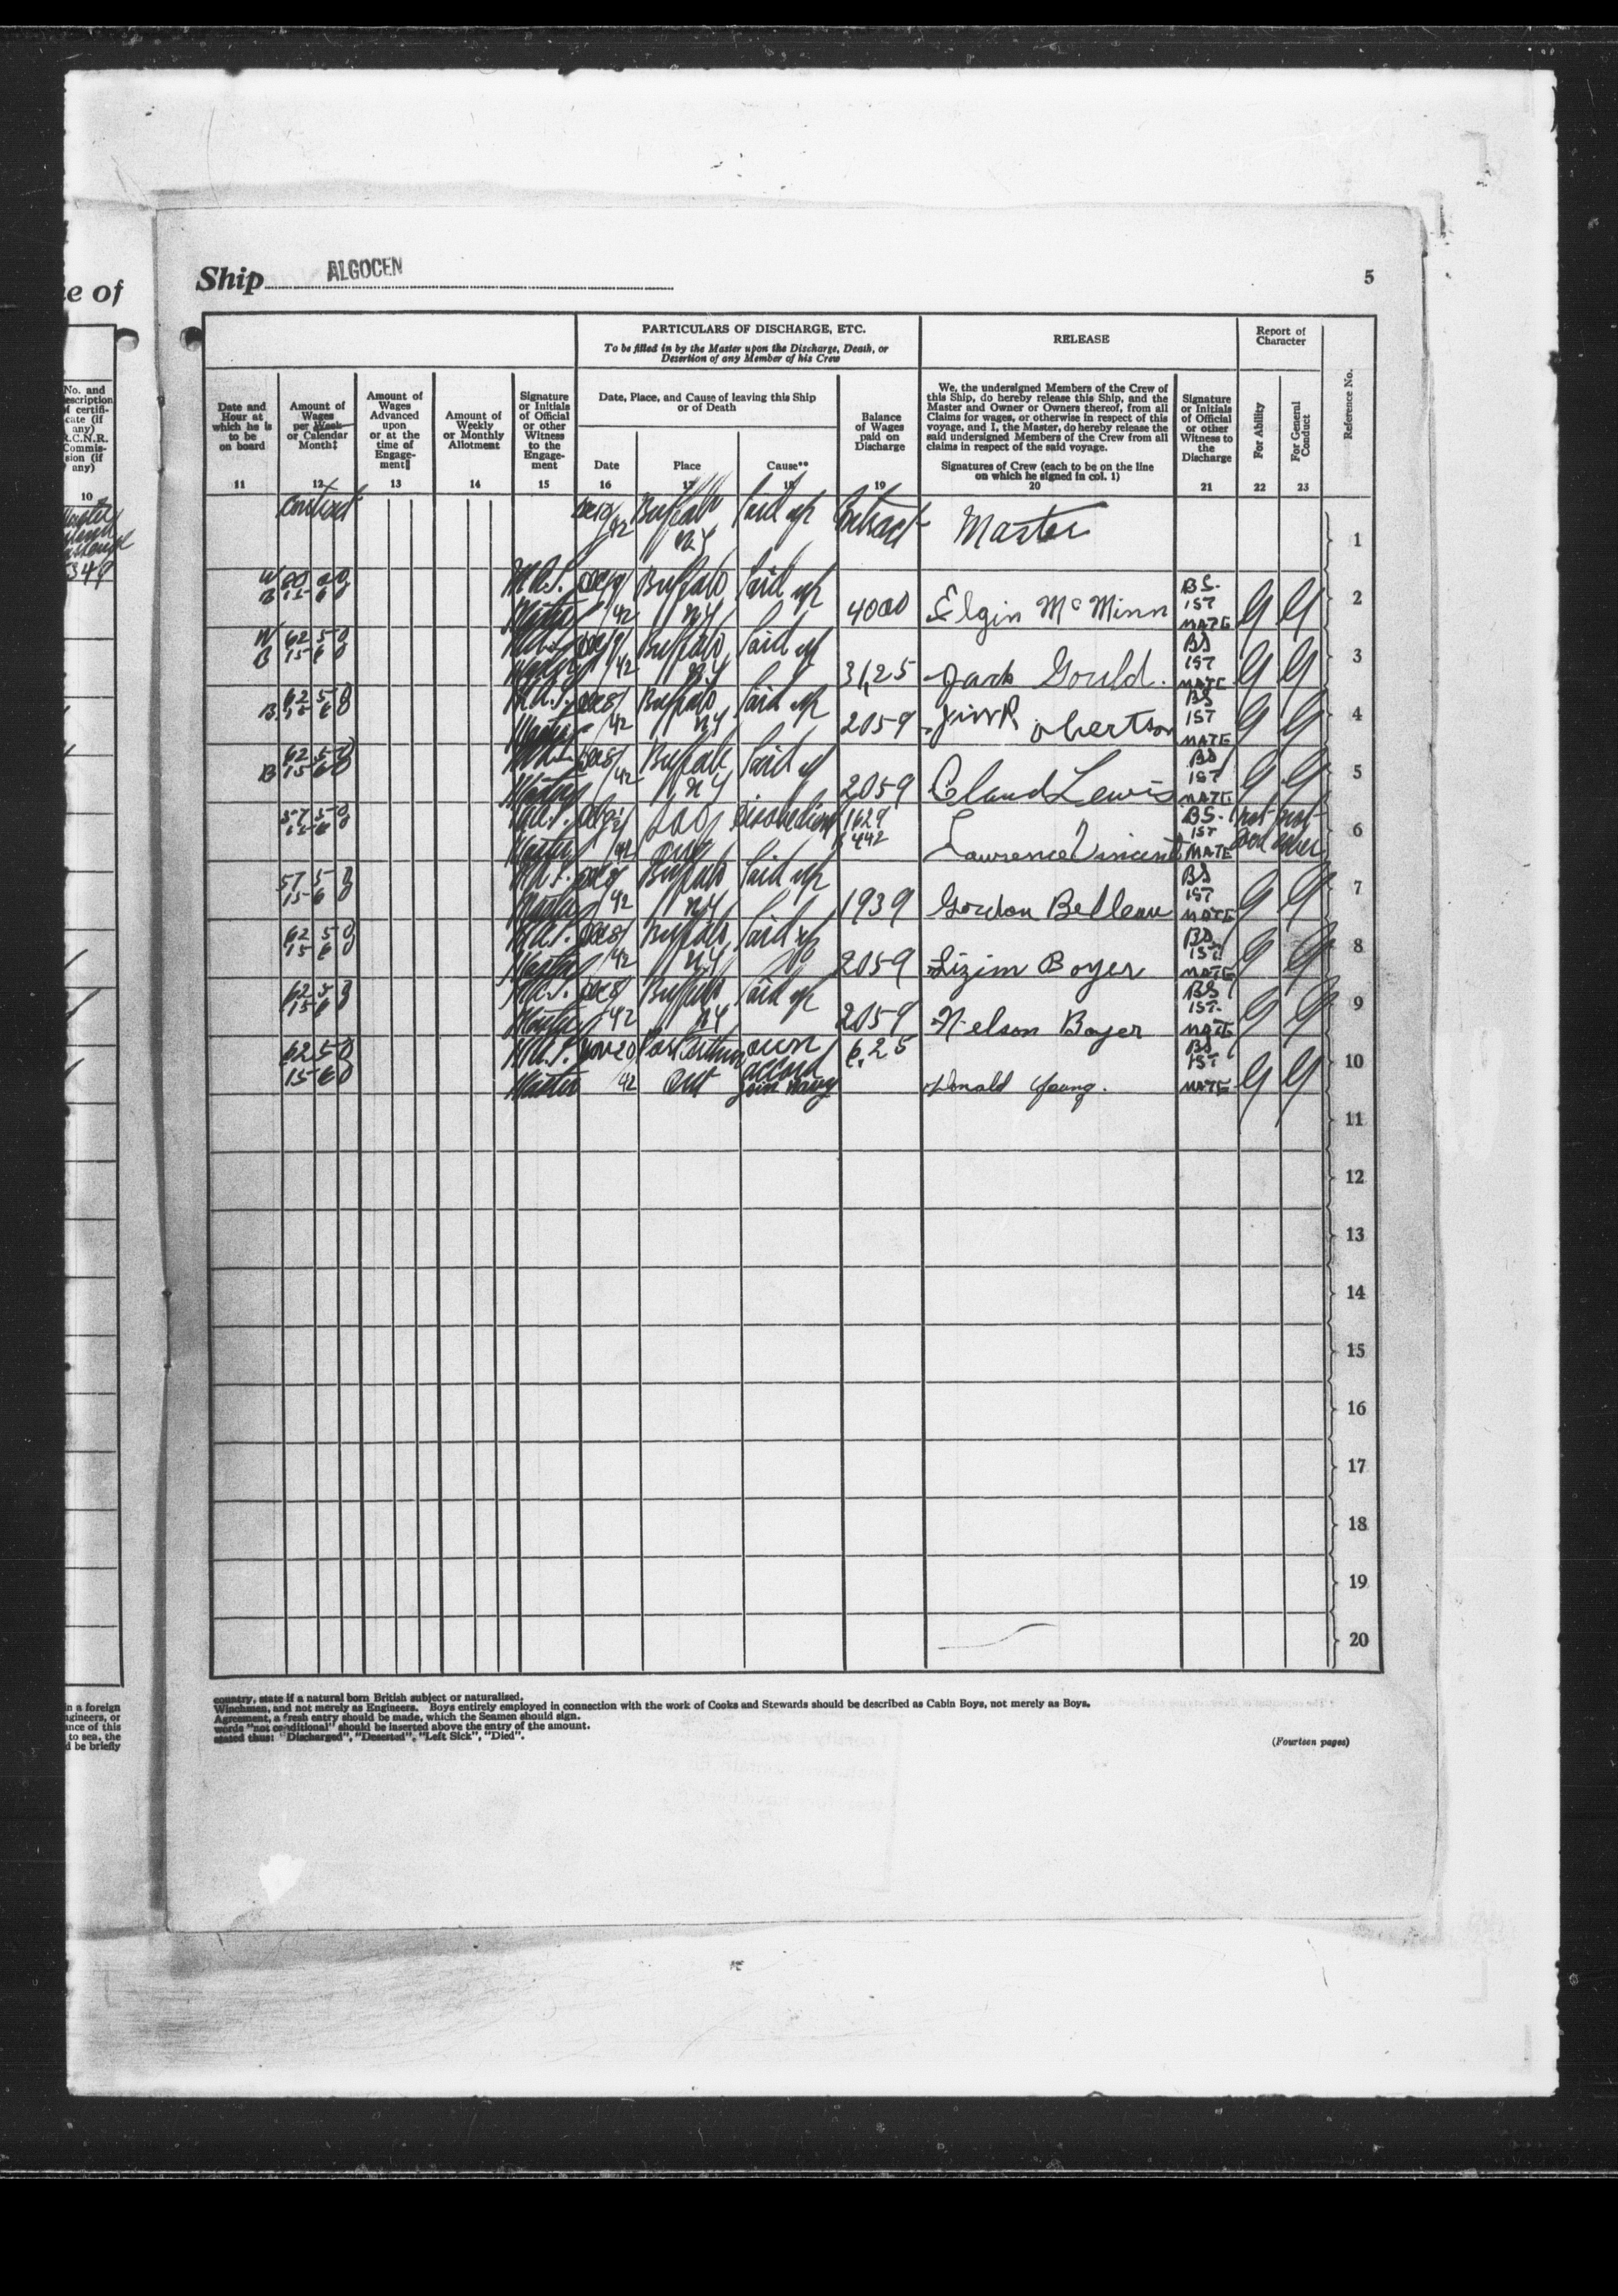 e of
No. and
escription
of certifi-
cate (if
any)
R.C.N.R.
Commis-
sion (if
any)
10
Ship ALGOCEN
5
PARTICULARS OF DISCHARGE, ETC.
To be filled in by the Master upon the Discharge, Death, or
Desertion of any Member of his Crew
RELEASE
Report of
Character
Reference No.
Date and
Hour at
which he is
to be
on board
11
Amount of
Wages
per Week
or Calendar
Month‡
12
Amount of
Wages
Advanced
upon
or at the
time of
Engage-
ment‖
13
Amount of
Weekly
or Monthly
Allotment
14
Signature
or Initials
of Official
or other
Witness
to the
Engage-
ment
15
Date, Place, and Cause of leaving this Ship
or of Death
Date
16
Place
17
Cause**
18
Balance
of Wages
paid on
Discharge
19
We, the undersigned Members of the Crew of
this Ship, do hereby release this Ship, and the
Master and Owner or Owners thereof, from all
Claims for wages, or otherwise in respect of this
voyage, and I, the Master, do hereby release the
said undersigned Members of the Crew from all
claims in respect of the said voyage.
Signatures of Crew (each to be on the line
on which he signed in col. 1)
20
Signature
or Initials
of Official
or other
Witness to
the
Discharge
21
For Ability
22
For General
Conduct
23
Contract 42 Buffalo NY Laid up Contract Master 1
W 80 00 B 15 60 Master 42 Buffalo NY Laid up 4000 Elgin McMinn BS. 1ST MATE G G 2
W 62 50 B 15 60 42 Buffalo NY Laid up 31,25 Jack Gould. BS 1ST MATE G G 3
62 50 B 15 60 Master Dec 8/42 Buffalo NY Laid up 2059 Jim Robertson BS 1ST MATE G G 4
62 50 B 15 60 Master Dec 8/42 Buffalo NY Laid up 2059 Claud Lewis BS 1ST MATE G G 5
57 50 15 60 Master 42 Soo Ont 1629 442 Lawrence Vincent BS. 1ST MATE 6
57 50 15 60 Master Dec 8/42 Buffalo NY Laid up 1939 Gordon Belleau BS 1ST MATE G G 7
62 50 15 60 Master Dec 8/42 Buffalo NY Laid up 2059 Lizim Boyer BS 1ST MATE G G 8
62 50 15 60 Master Dec 8/42 Buffalo NY Laid up 2059 Nelson Boyer BS 1ST. MATE G G 9
62 50 15 60 Master Nov 20 42 Port Arthur Ont own accord join navy 6.25 Donald Young. BS 1ST MATE G G 10
11
12
13
14
15
16
17
18
19
20
in a foreign
ngineers, or
ance of this
to sea, the
d be briefly
country, state if a natural born British subject or naturalised.
Winchmen, and not merely as Engineers. Boys entirely employed in connection with the work of Cooks and Stewards should be described as Cabin Boys, not merely as Boys.
Agreement, a fresh entry should be made, which the Seamen should sign.
words "not conditional" should be inserted above the entry of the amount.
stated thus: "Discharged", "Deserted", "Left Sick", "Died".
(Fourteen pages)